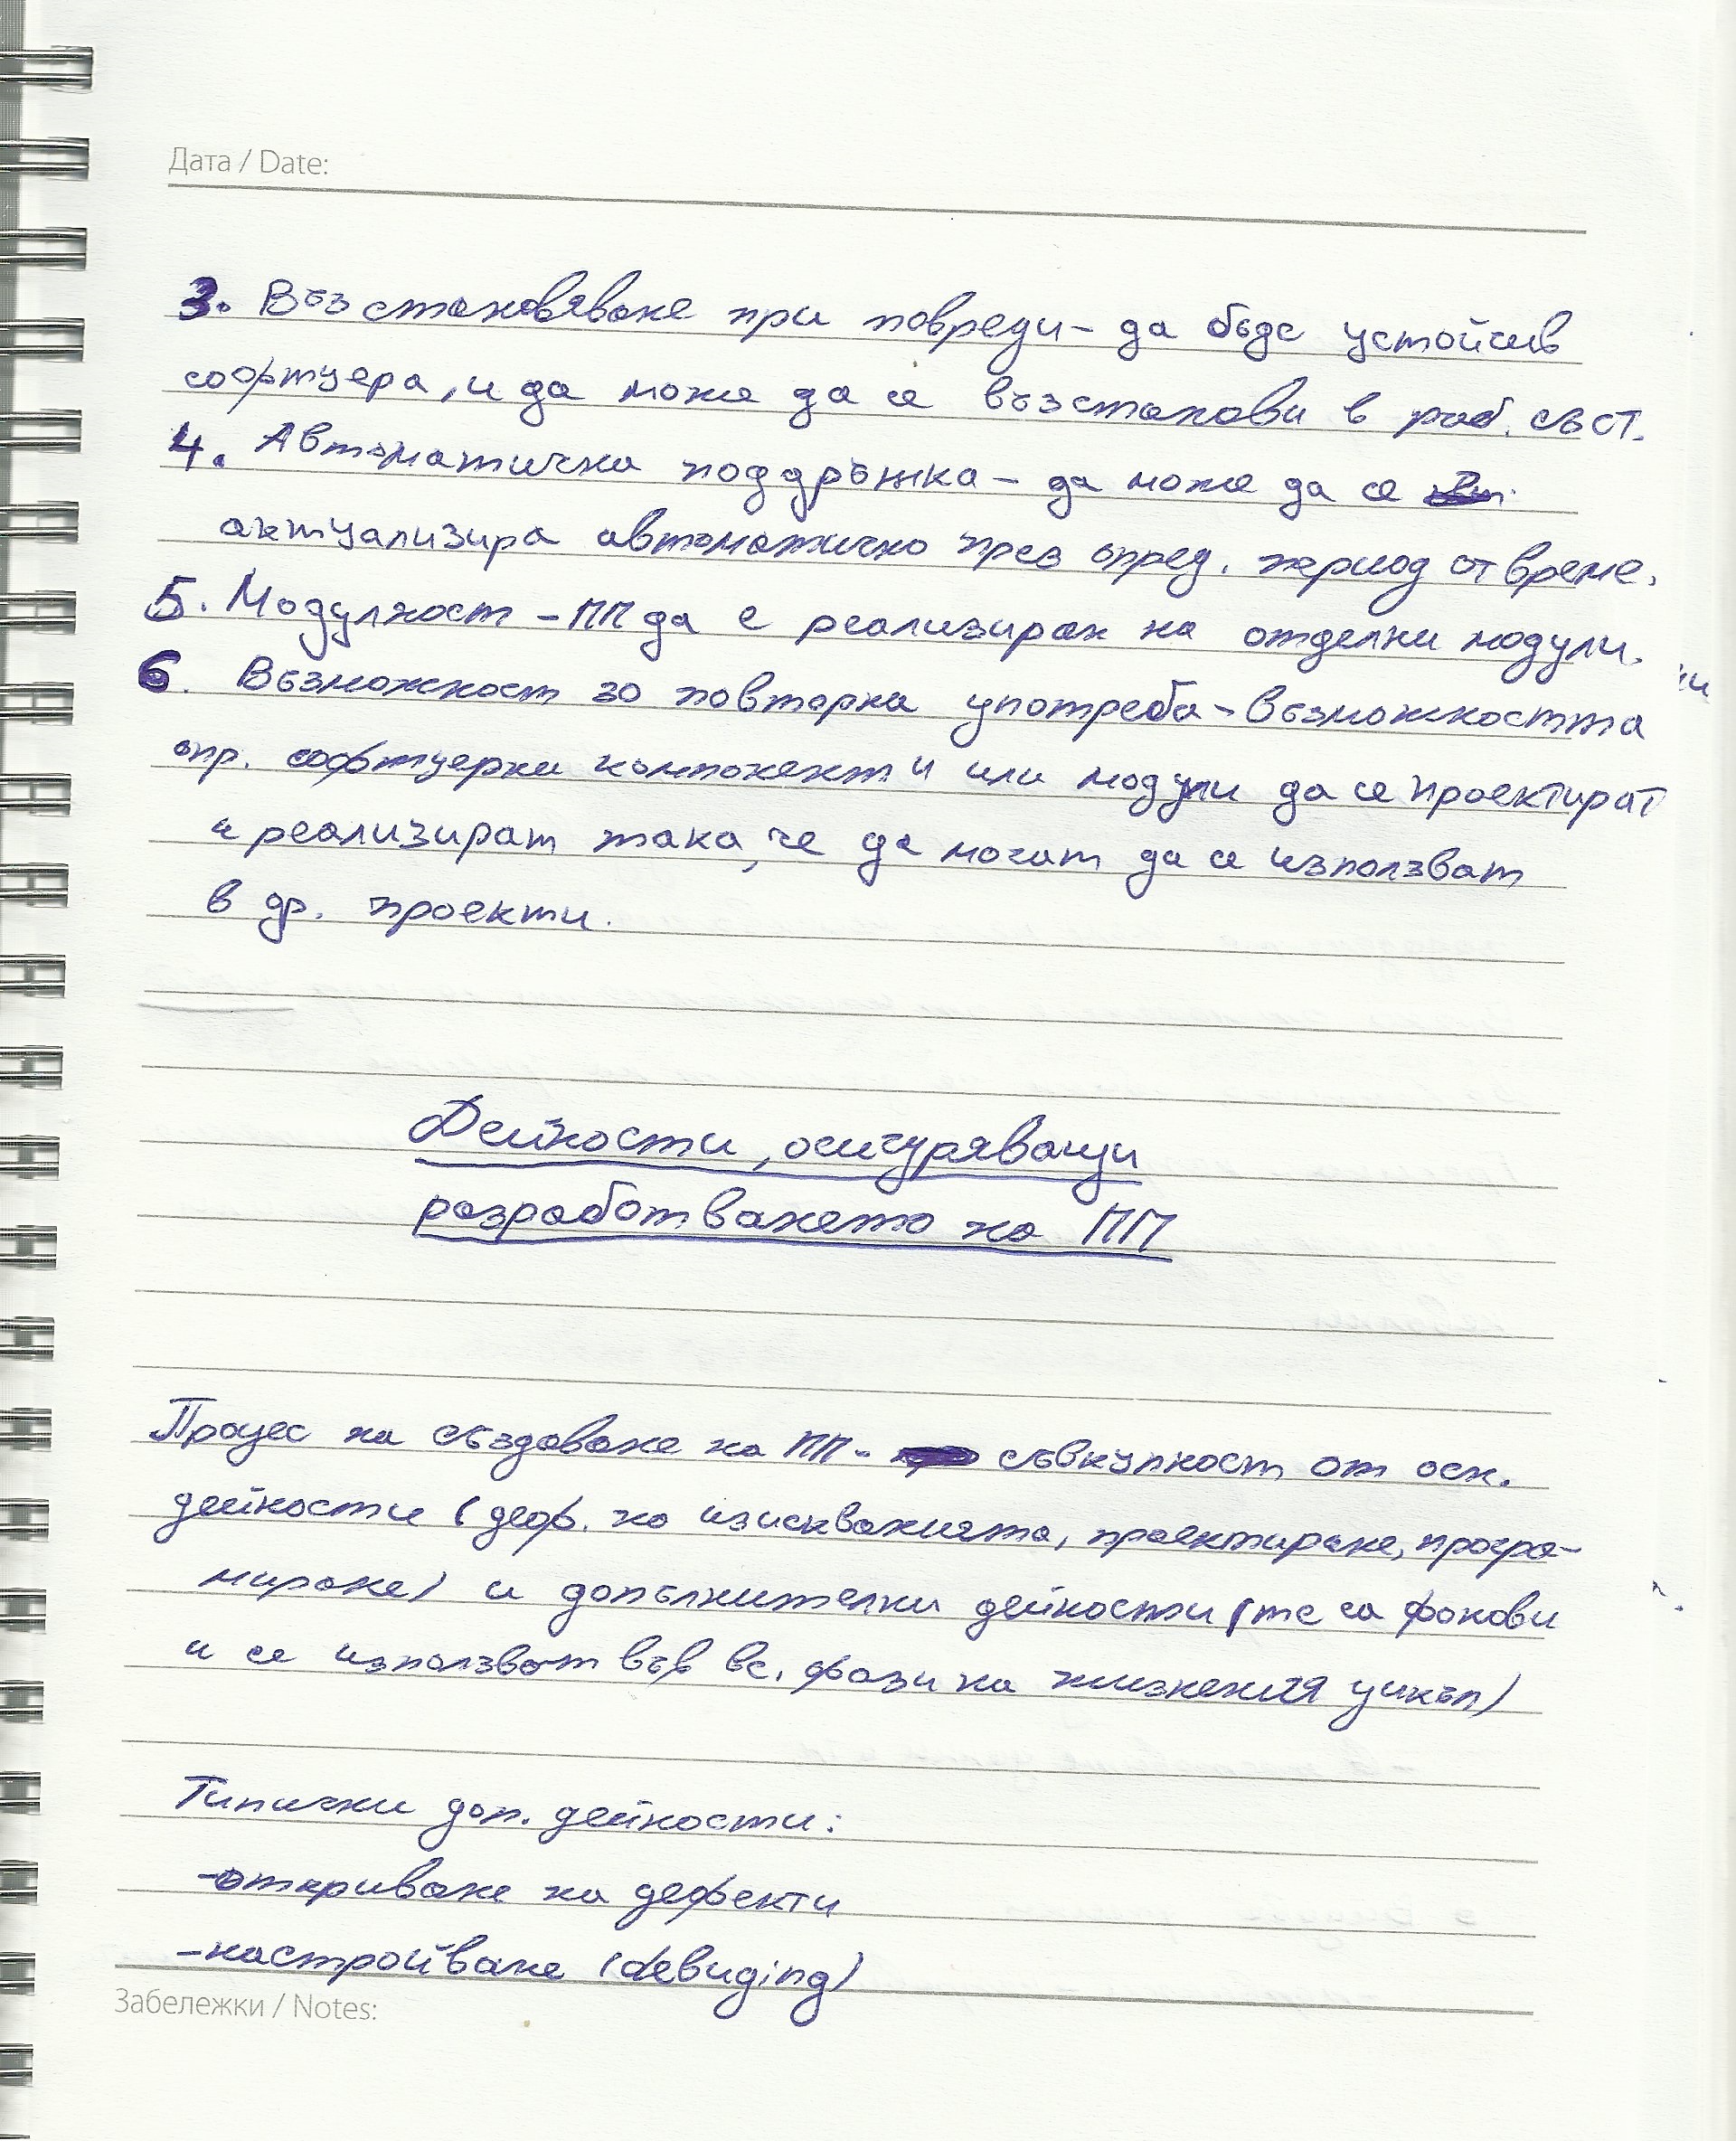 Дата / Date:
3. Възстановяване при повреди - да бъде устойчив
софтуера, и да може да се възстанови в раб. съст.
4. Автоматична поддръжка - да може да се
актуализира автоматично през опред. период от време.
5. Модулност - ПП да е реализиран на отделни модули.
6. Възможност за повторна употреба - възможността
опр. софтуерни компоненти или модули да се проектират
и реализират така, че да могат да се използват
в др. проекти.
Дейности, осигуряващи
разработването на ПП
Процес на създаване на ПП - съвкупност от осн.
дейности (деф. на изискванията, проектиране, програ-
миране) и допълнителни дейности (те са фонови
и се използват във вс. фази на жизнения цикъл)
Типични доп. дейности:
-откриване на дефекти
-настройване (debuging)
Забележки / Notes: